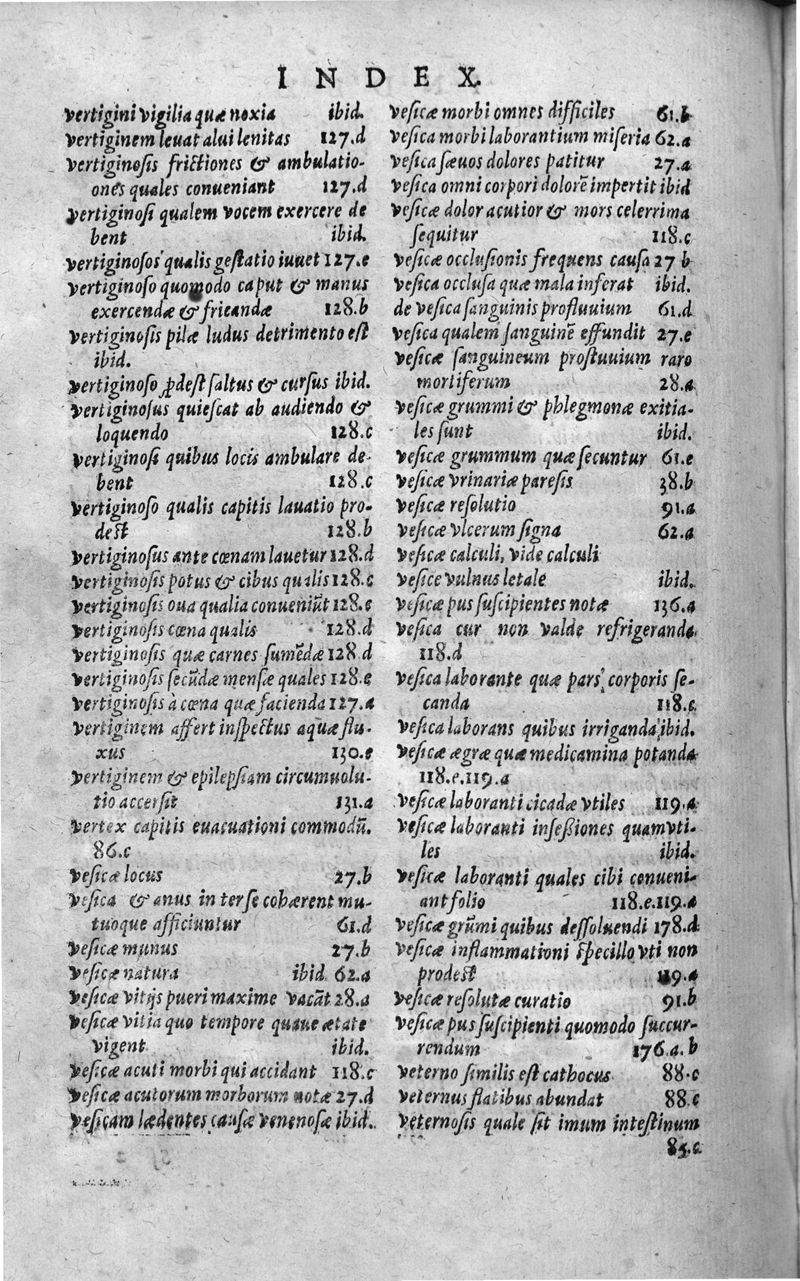 INDEX.
vertigini vigilia quæ noxia ibid.
vertiginem leuat alui lenitas 127.d
vertiginosis frictiones & ambulatio-
ones quales conueniant 127.d
vertiginosi qualem vocem exercere de
bent ibid.
vertiginosos qualis gestatio iuuet 127.e
vertiginoso quomodo caput & manus
exercendæ & fricandæ 128.b
vertiginosis pilæ ludus detrimento est
ibid.
vertiginoso ꝓdest saltus & cursus ibid.
vertiginosus quiescat ab audiendo &
loquendo 128.c
vertiginosi quibus locis ambulare de-
bent 128.c
vertiginoso qualis capitis lauatio pro-
dest 128.b
vertiginosus ante cœnam lauetur 128.d
vertiginosis potus & cibus qualis 128.c
vertiginosis oua qualia conueniūt 128.e
vertiginosis cœna qualis 128.d
vertiginosis quæ carnes sumēdæ 128 d
vertiginosis secūdæ mensæ quales 128.e
vertiginosis à cœna quæ facienda 127.a
vertiginem affert inspectus aquæ flu-
xus 130.e
vertiginem & epilepsiam circumuolu-
tio accersit 131.a
vertex capitis euacuationi commodū.
86.c
vesicæ locus 27.b
vesica & anus inter se cohærent mu-
tuoque afficiuntur 61.d
vesicæ munus 27.b
vesicæ natura ibid 62.a
vesicæ vitijs pueri maxime vacāt 28.a
vesicæ vitia quo tempore quaue ætate
vigent ibid.
vesicæ acuti morbi qui accidant 118.c
vesicæ acutorum morborum notæ 27.d
vesicam lædentes causæ venenosæ ibid.
vesicæ morbi omnes difficiles 61.b
vesica morbi laborantium miseria 62.a
vesica sæuos dolores patitur 27.a
vesica omni corpori dolorē impertit ibid
vesicæ dolor acutior & mors celerrima
sequitur 118.c
vesicæ occlusionis frequens causa 27 b
vesica occlusa quæ mala inferat ibid.
de vesica sanguinis profluuium 61.d
vesica qualem sanguinē effundit 27.e
vesicæ sanguineum profluuium raro
mortiferum 28.a
vesicæ grummi & phlegmonæ exitia-
les sunt ibid.
vesicæ grummum quæ secuntur 61.e
vesicæ vrinariæ paresis 38.b
vesicæ resolutio 91.a
vesicæ vlcerum signa 62.a
vesicæ calculi, vide calculi
vesice vulnus letale ibid.
vesicæ pus suscipientes notæ 136.a
vesica cur non valde refrigeranda
118.d
vesica laborante quæ pars corporis se-
canda 118.c
vesica laborans quibus irriganda ibid.
vesicæ ægræ quæ medicamina potanda
118.e.119.a
vesicæ laboranti cicadæ vtiles 119.a
vesicæ laboranti insessiones quam vti-
les ibid.
vesicæ laboranti quales cibi conueni-
ant folio 118.e.119.a
vesicæ grūmi quibus dessoluendi 178.d
vesicæ inflammationi specillo vti non
prodest 119.a
vesicæ resolutæ curatio 91.b
vesicæ pus suscipienti quomodo succur-
rendum 176.a.b
veterno similis est cathocus 88.c
veternus flatibus abundat 88.c
veternosis quale sit imum intestinum
85.c